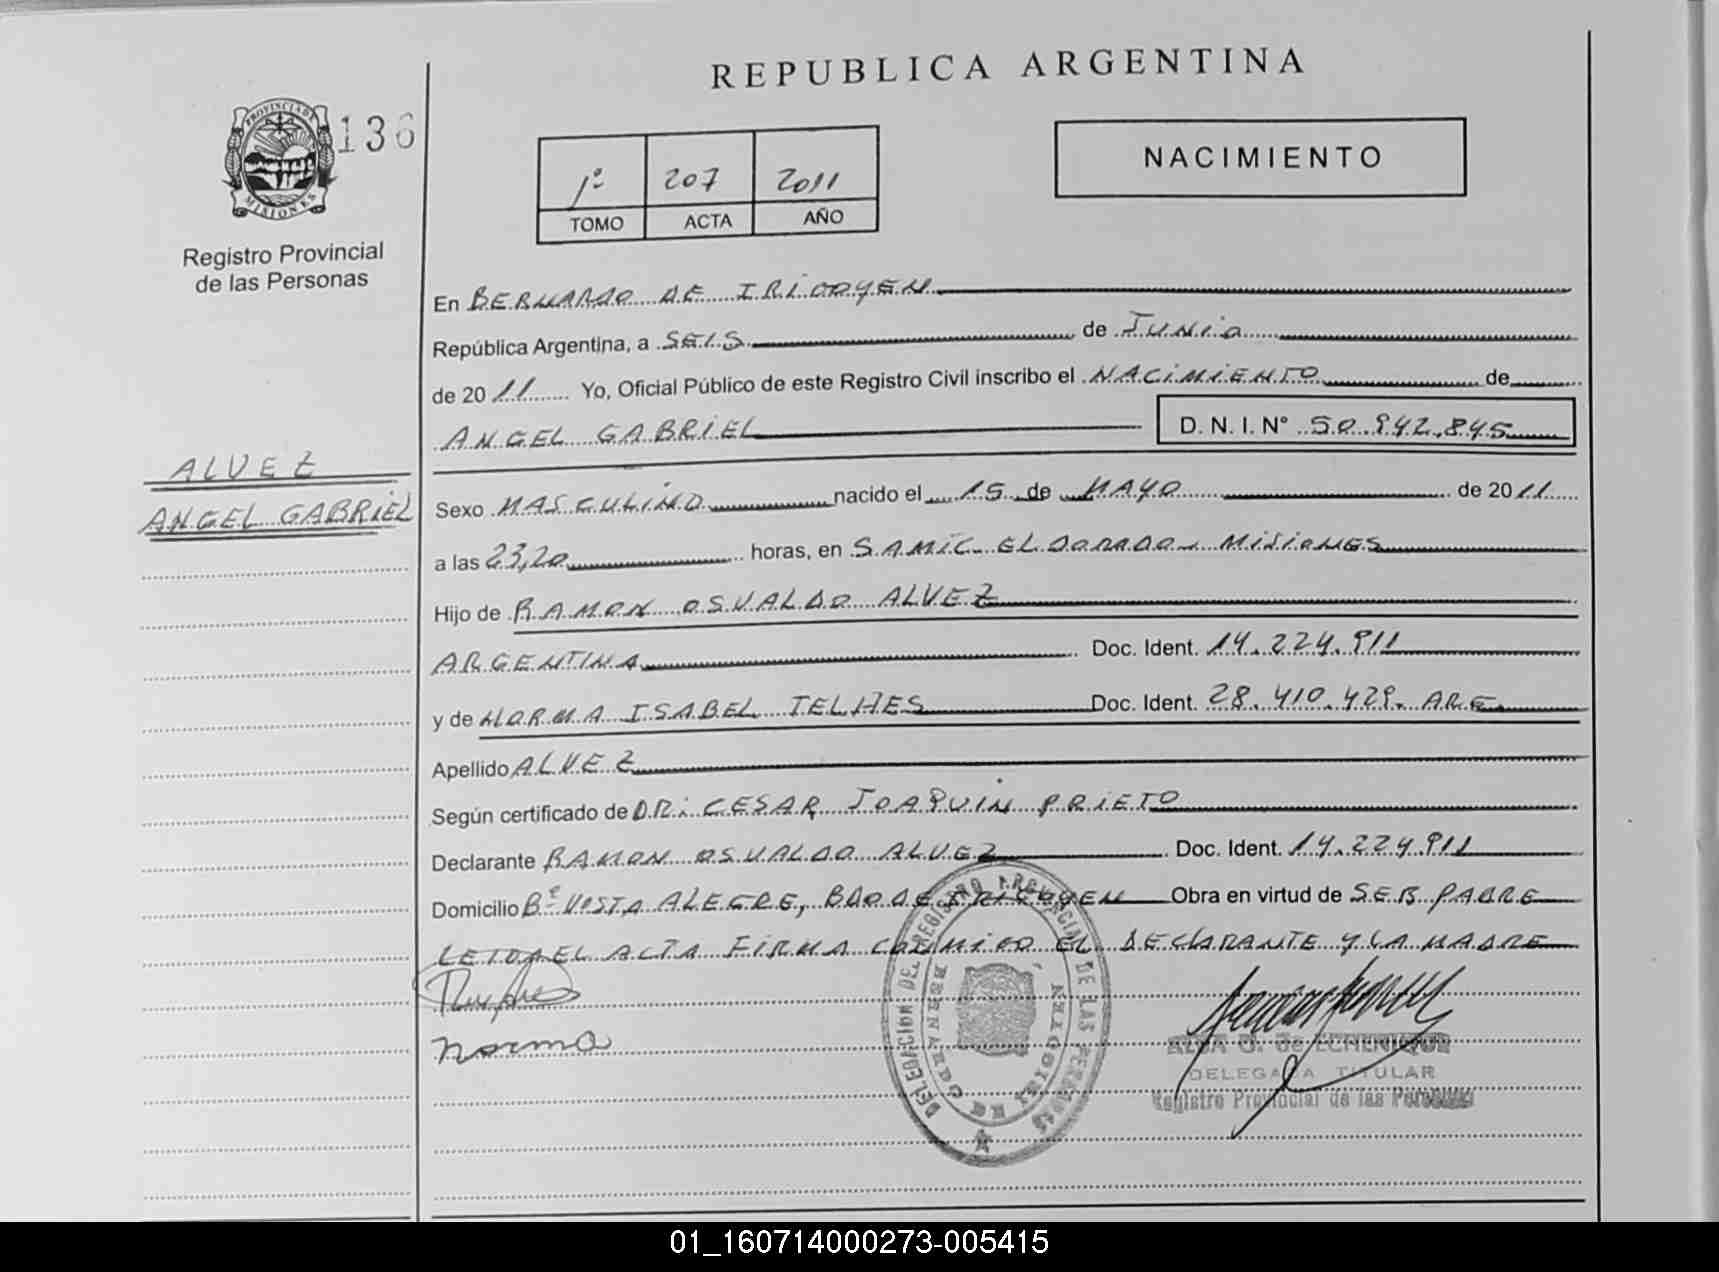 REPUBLICA ARGENTINA
PROVINCIA DE MISIONES
136
1º 207 2011
TOMO ACTA AÑO
NACIMIENTO
Registro Provincial
de las Personas
ALVEZ
ANGEL GABRIEL
En BERNARDO DE IRIGOYEN
República Argentina, a SEIS de JUNIO
de 2011 Yo, Oficial Público de este Registro Civil inscribo el NACIMIENTO de
ANGEL GABRIEL D. N. I. Nº 50.942.845
Sexo MASCULINO nacido el 15 de MAYO de 2011
a las 23,20 horas, en SAMIC ELDORADO - MISIONES
Hijo de RAMON OSVALDO ALVEZ
ARGENTINA Doc. Ident. 14.224.911
y de NORMA ISABEL TELHES Doc. Ident. 28.410.429. ARG.
Apellido ALVEZ
Según certificado de DR: CESAR JOAQUIN PRIETO
Declarante RAMON OSVALDO ALVEZ Doc. Ident. 14.224.911
Domicilio Bº VISTA ALEGRE, BDO DE IRIGOYEN Obra en virtud de SER PADRE
LEIDA EL ACTA FIRMA CONMIGO EL DECLARANTE Y LA MADRE
Norma
DELEGACION DEL REGISTRO PROVINCIAL DE LAS PERSONAS
BERNARDO DE IRIGOYEN
ALBA G. de ECHENIQUE
DELEGADA TITULAR
Registro Provincial de las Personas
01_160714000273-005415